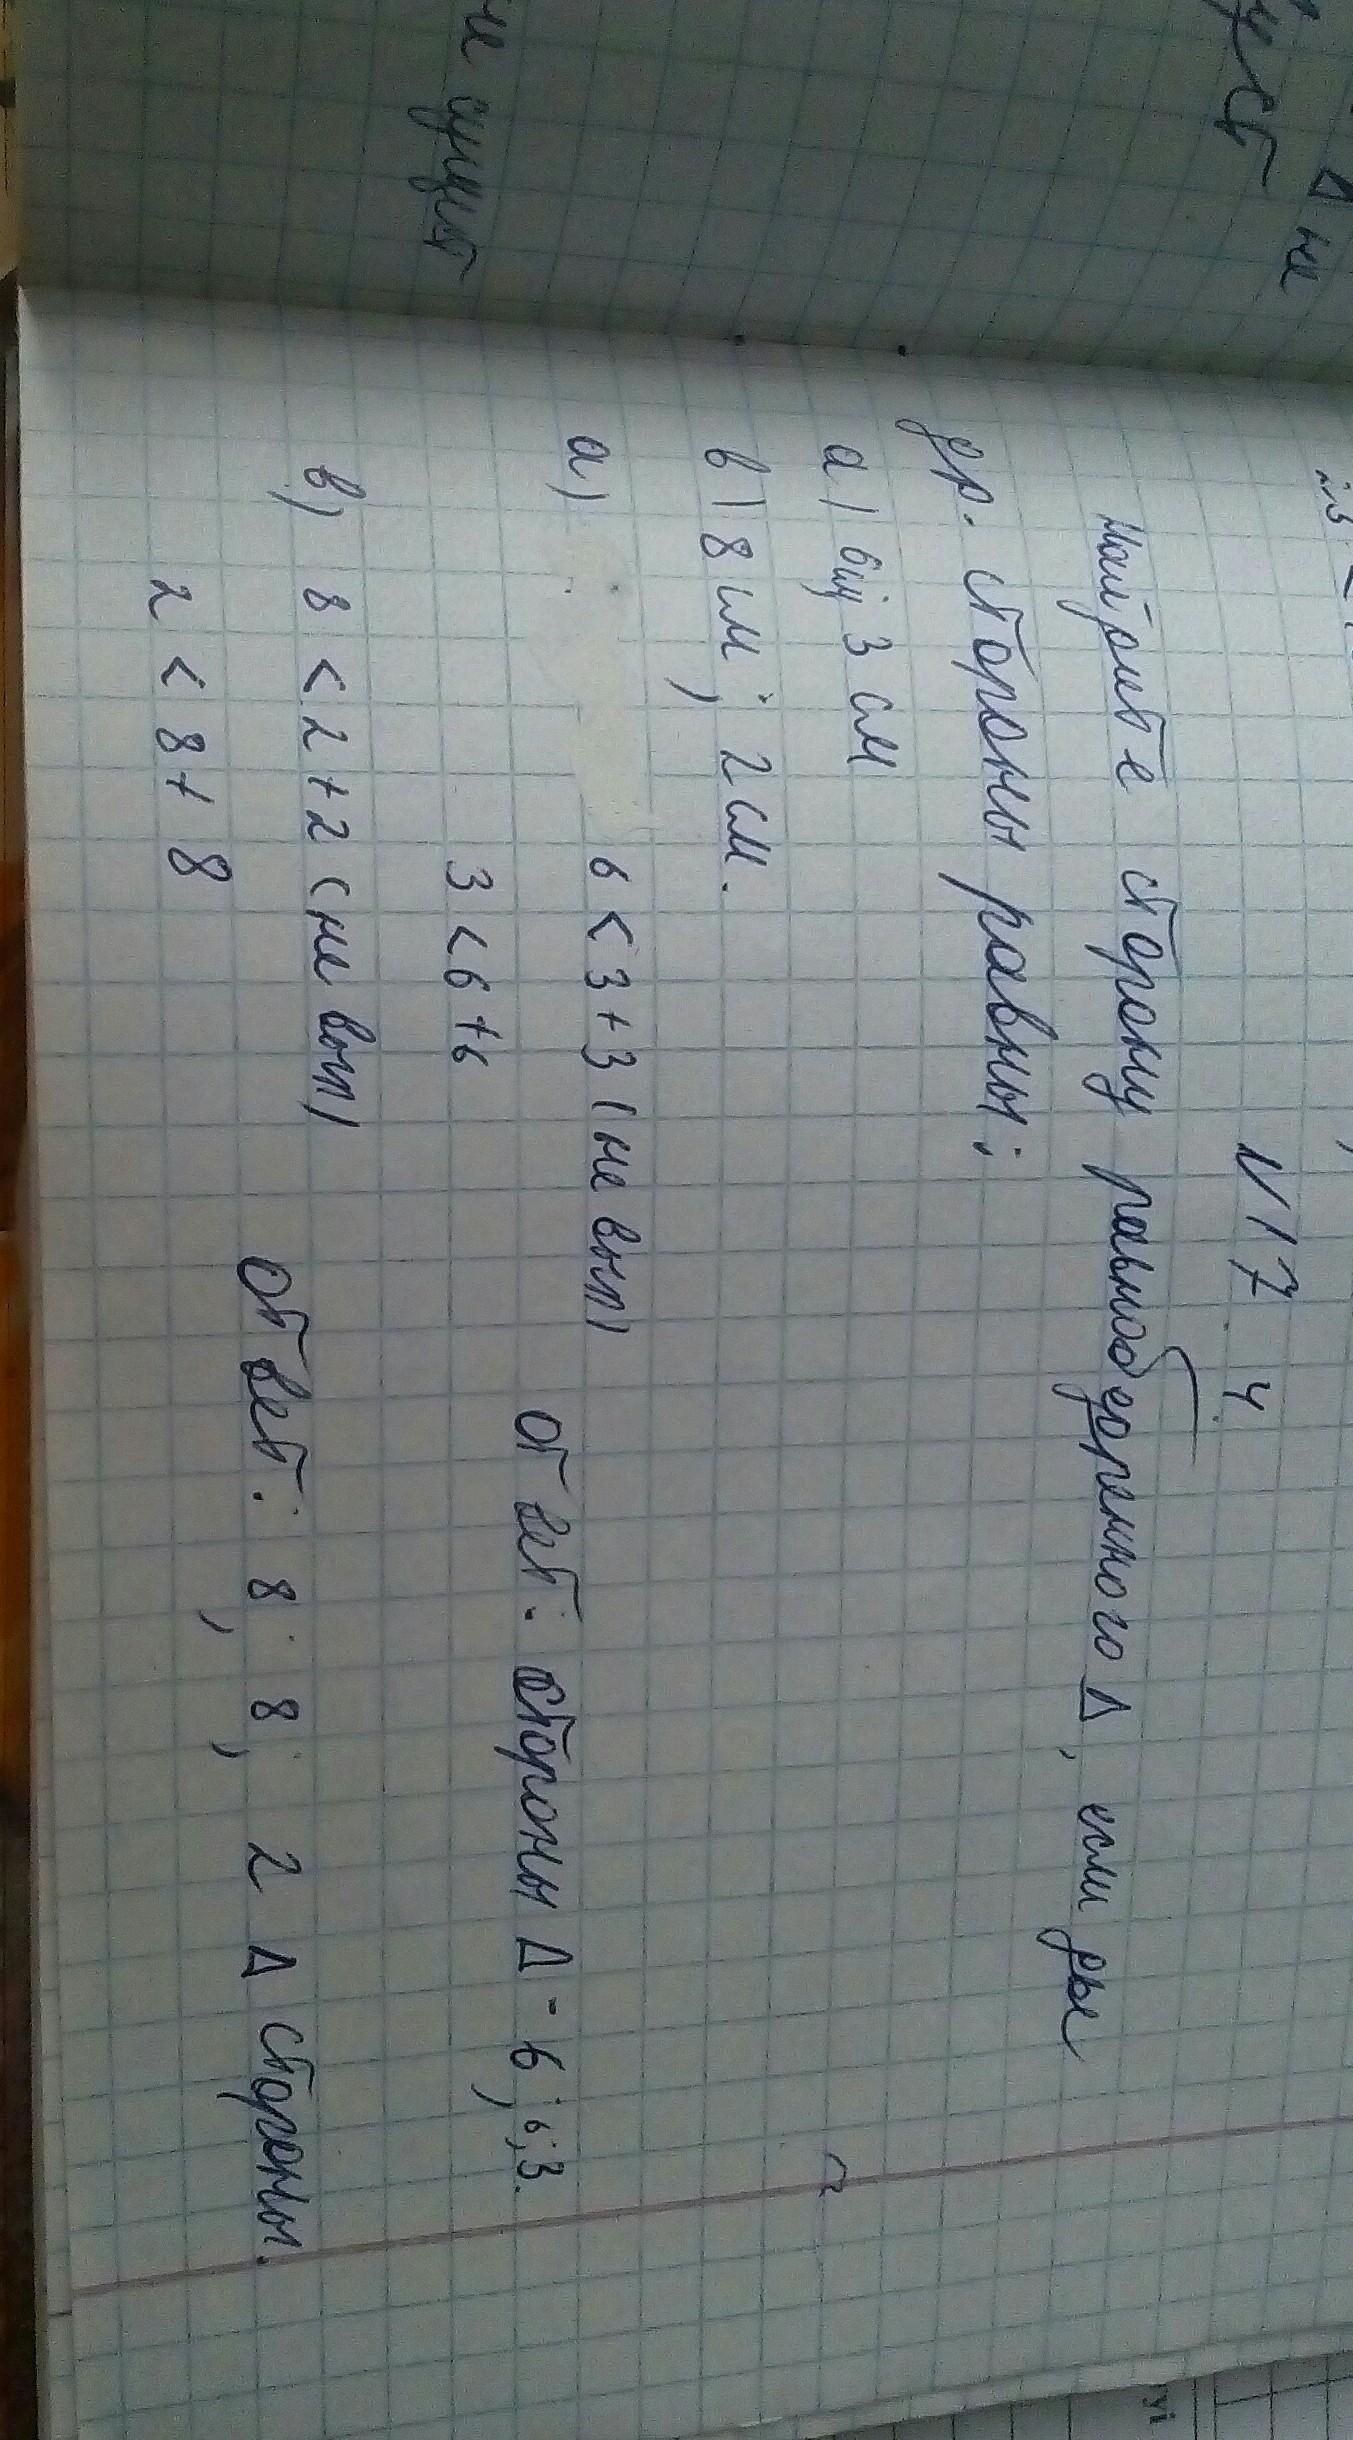 Δ не
сущ
N 17. 4.
Найдите сторону равнобедренного Δ, если две
др. стороны равны:
а) 6 и 3 см
в) 8 см; 2 см.
а) 6 < 3+3 (не вып)
3 < 6 + 6
Ответ: стороны Δ - 6; 6; 3.
в) 8 < 2+2 (не вып)
2 < 8 + 8
Ответ: 8; 8; 2 Δ стороны.
yi